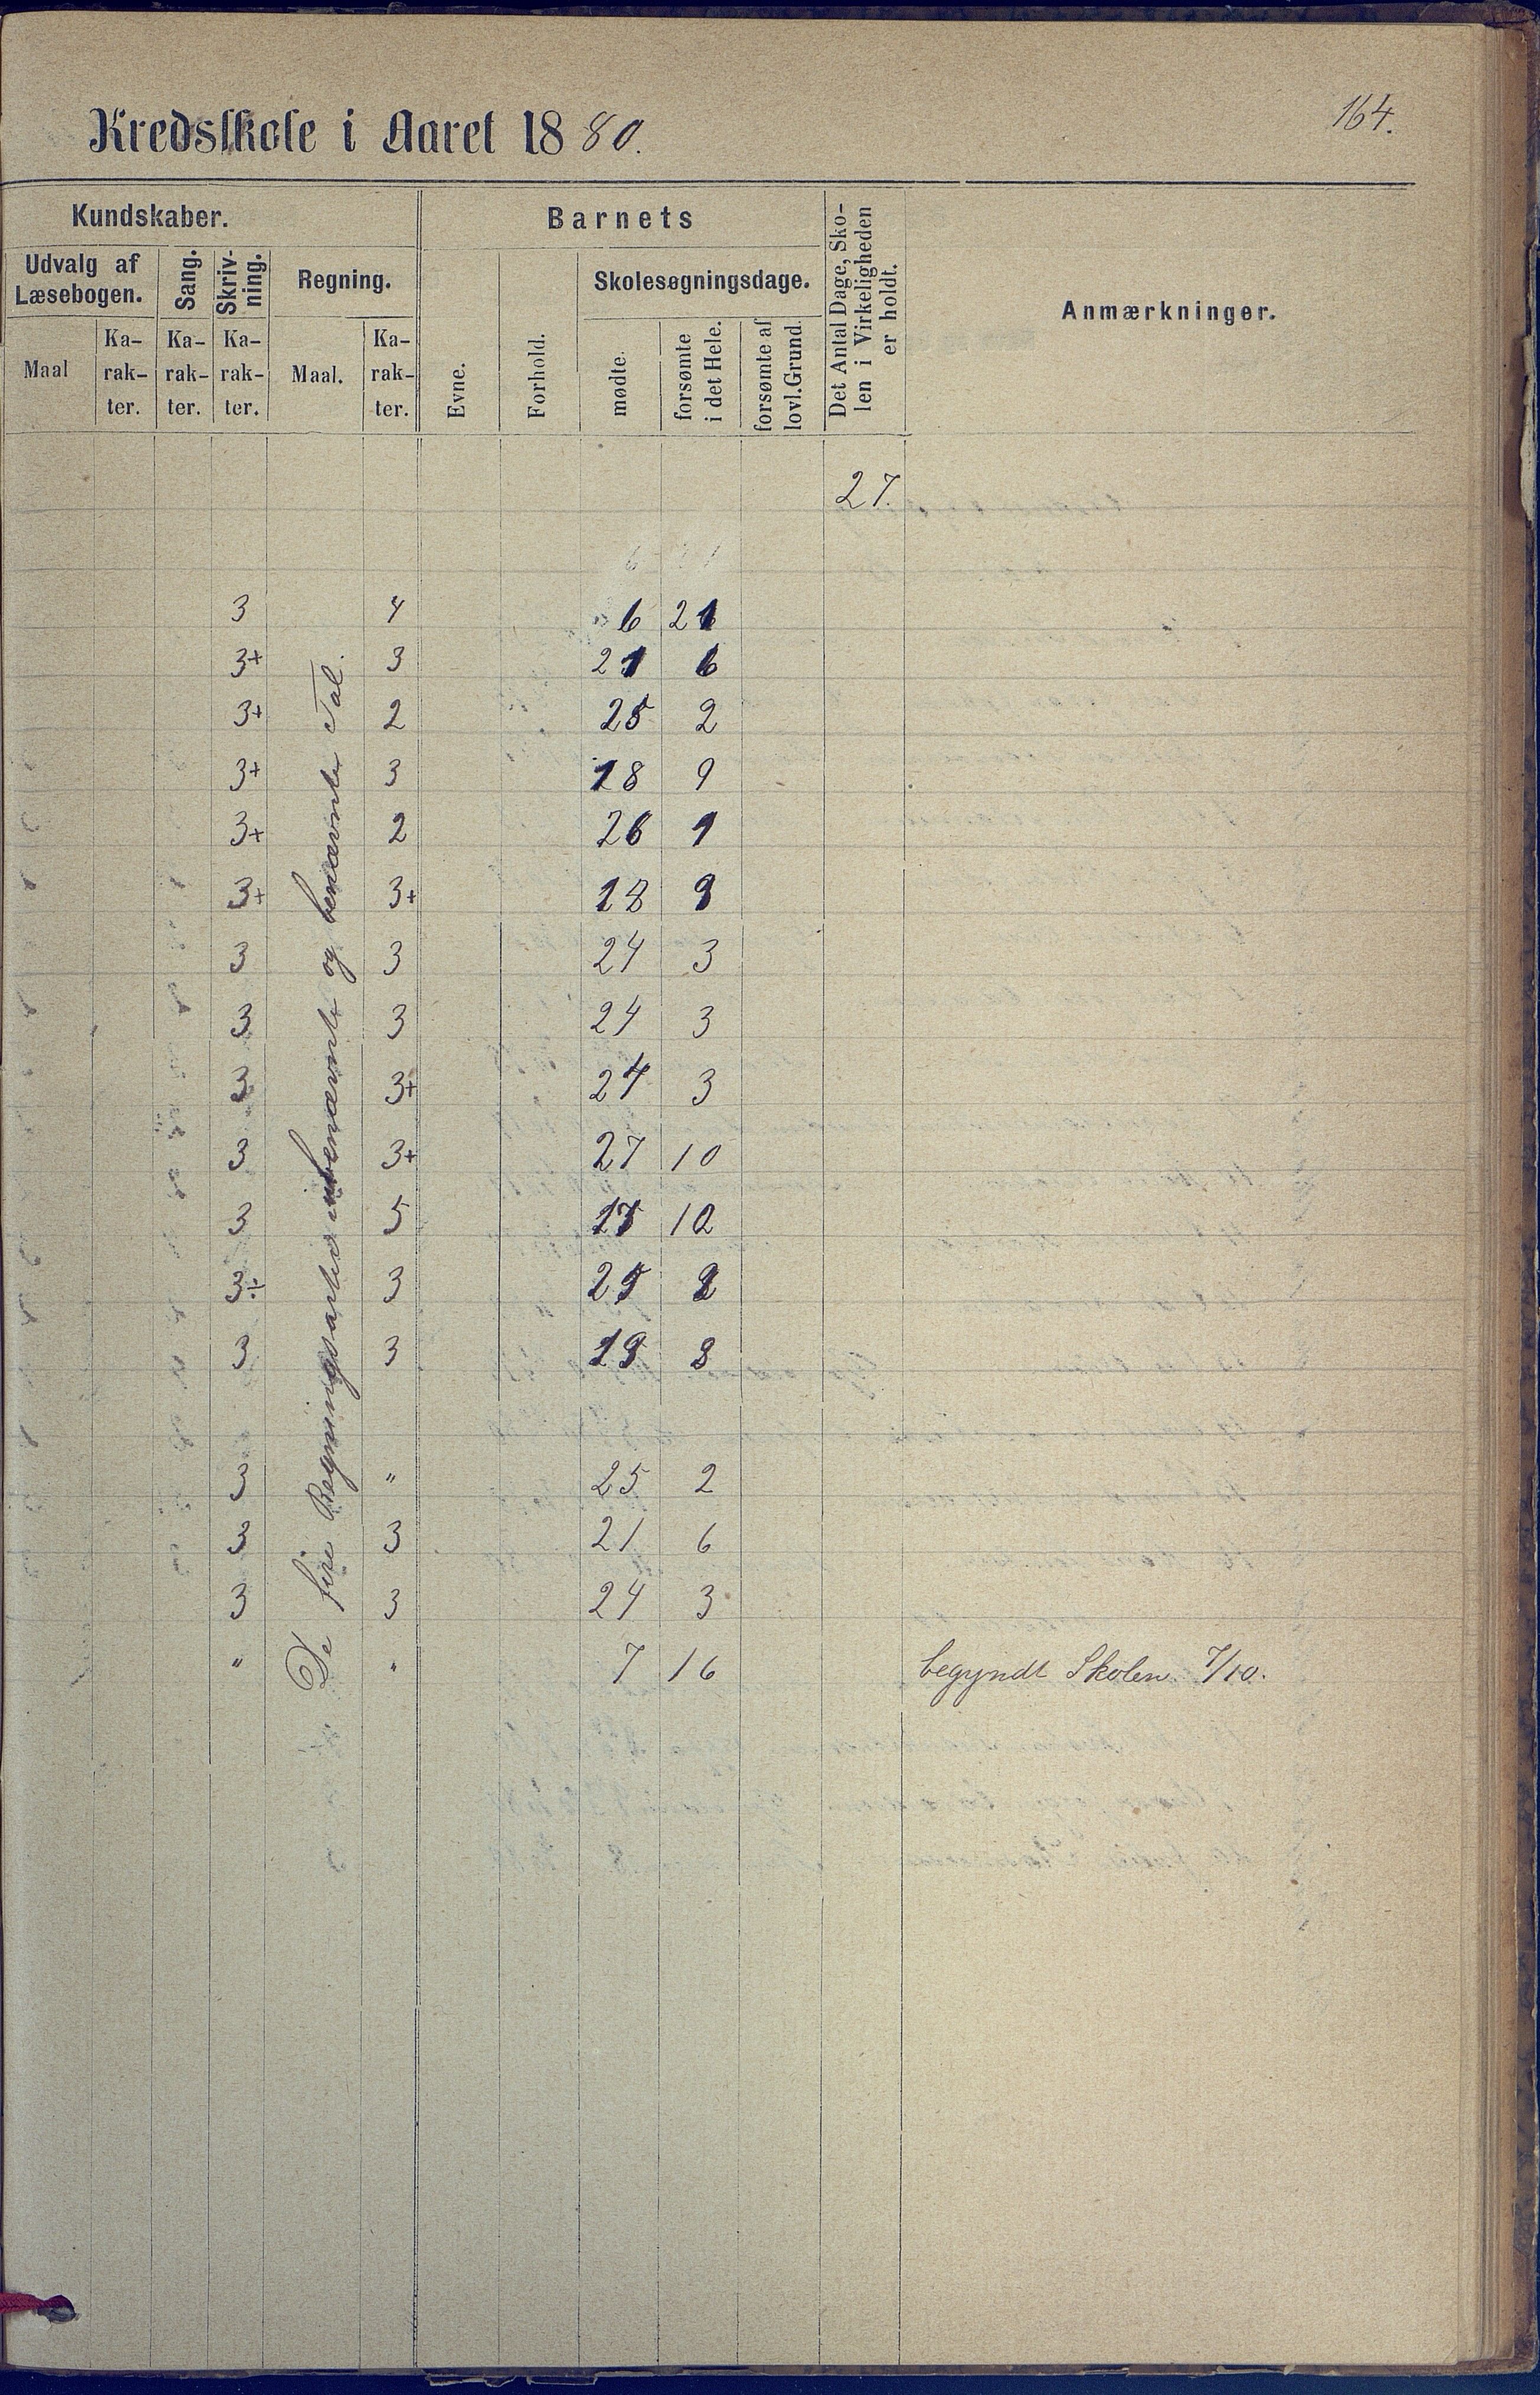 164.
Kredsskole i Aaret 1880.
Kundskaber.
Barnets
Det Antal Dage, Sko-
len i Virkeligheden
er holdt.
Anmærkninger.
Udvalg af
Læsebogen.
Sang.
Skriv-
ning.
Regning.
Evne.
Forhold.
Skolesøgningsdage.
Maal
Ka-
rak-
ter.
Ka-
rak-
ter.
Ka-
rak-
ter.
Maal.
Ka-
rak-
ter.
mødte.
forsømte
i det Hele.
forsømte af
lovl. Grund.
27.
De fire Regningsarter i ubenævnte og benævnte Tal.
3 4 6 21
3+ 3 21 6
3+ 2 25 2
3+ 3 18 9
3+ 2 26 1
3+ 3+ 18 9
3 3 24 3
3 3 24 3
3 3+ 24 3
3 3+ 27 10
3 5 17 10
3÷ 3 25 2
3 3 19 8
3 " 25 2
3 3 21 6
3 3 24 3
" " 7 16 begyndt Skolen 7/10.